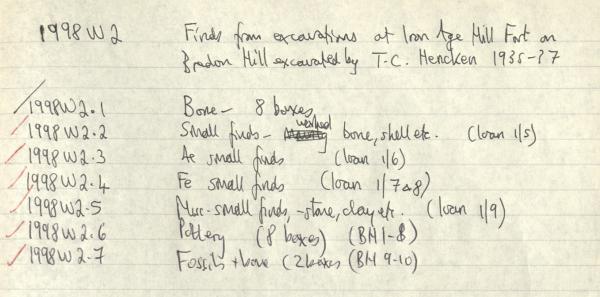 1998 W2 Finds from excavations at Iron Age Hill Fort on
Bredon Hill excavated by T.C. Hencken 1935-37
1998W2.1 Bone - 8 boxes
1998W2.2 Small finds - worked bone, shell etc. (loan 1/5)
1998W2.3 Ae small finds (loan 1/6)
1998W2.4 Fe small finds (loan 1/7&8)
1998W2.5 Misc. small finds, - stone, clay etc. (loan 1/9)
1998W2.6 Pottery (8 boxes) (BH1-8)
1998W2.7 Fossils + bone (2 boxes (BH 9-10)